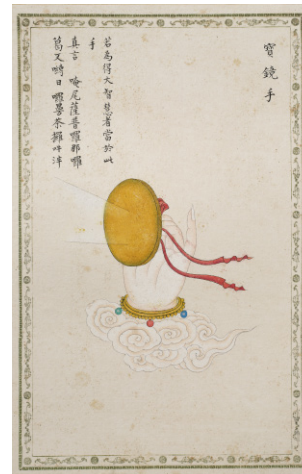 寶鏡手
若為得大智慧者當於此
手
真言 唵尾薩普囉那囉
葛叉嚩日囉曼荼攞吽泮